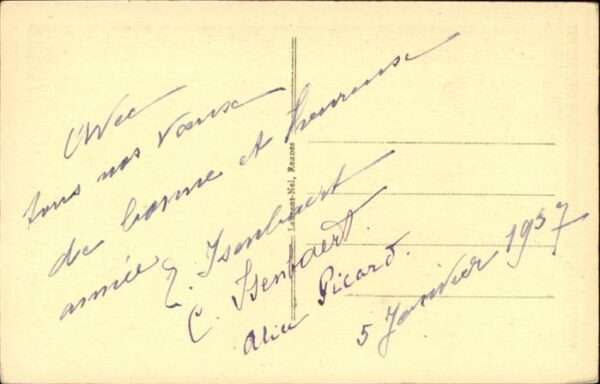 Avec
tous nos vœux
de bonne et heureuse
année
E. Isenbaert
C. Isenbaert.
Alice Picard.
5 Janvier 1937
Laurent-Nel, Rennes